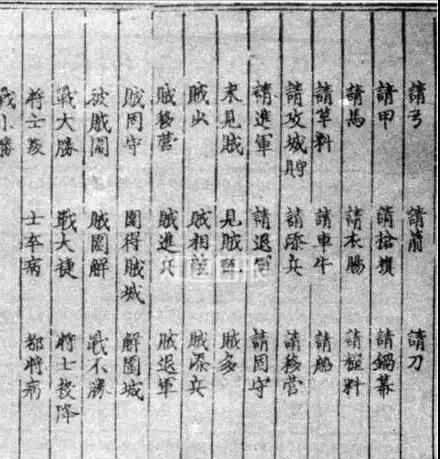 請弓 請箭 請刀
請甲 請槍旗 請鍋幕
請馬 請衣賜 請糧料
請草料 請車牛 請船
請攻城 請添兵 請移營
請進軍 請退軍 請固守
未見賊 見賊訖 賊多
賊相 賊添兵
賊移營 賊進兵 賊退軍
賊固守 圍得賊城 解圍城
被賊圍 賊圍解 戰不勝
戰大勝 戰大捷 將士投降
將士叛 士卒病 都將病
戰小勝